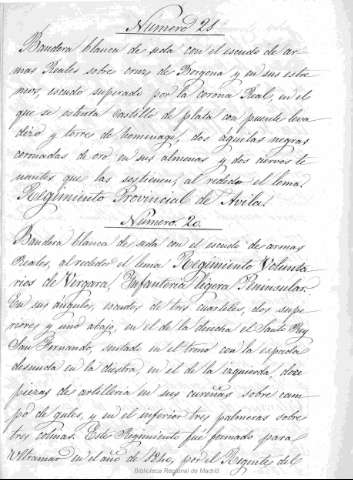 Numero 21
Bandera blanca de seda con el escudo de ar-
mas Reales sobre cruz de Borgoña y en sus estre-
mos, escudo superado por la corona Real, en el
que se ostenta castillo de plata con puente leva-
dizo y torres de homenage, dos águilas negras
coronadas de oro en sus almenas y dos ciervos te-
nantes que las sostienen, al rededor el lema.
Regimiento Provincial de Avila.
Numero 20.
Bandera blanca de seda con el escudo de armas
Reales, al rededor el lema Regimiento Volunta-
rios de Vergara, Infanteria ligera Peninsular.
En sus angulos, escudos de tres cuarteles, dos supe-
riores y uno abajo, en el de la derecha el Santo Rey
San Fernando, sentado en el trono con la espada
desnuda en la diestra, en el de la izquierda, doce
piezas de artilleria en sus cureñas sobre cam-
po de gules, y en el inferior tres palmeras sobre
tres colinas. Este Regimiento fué formado para
Ultramar en el año de 1840, por el Regente del
Biblioteca Regional de Madrid